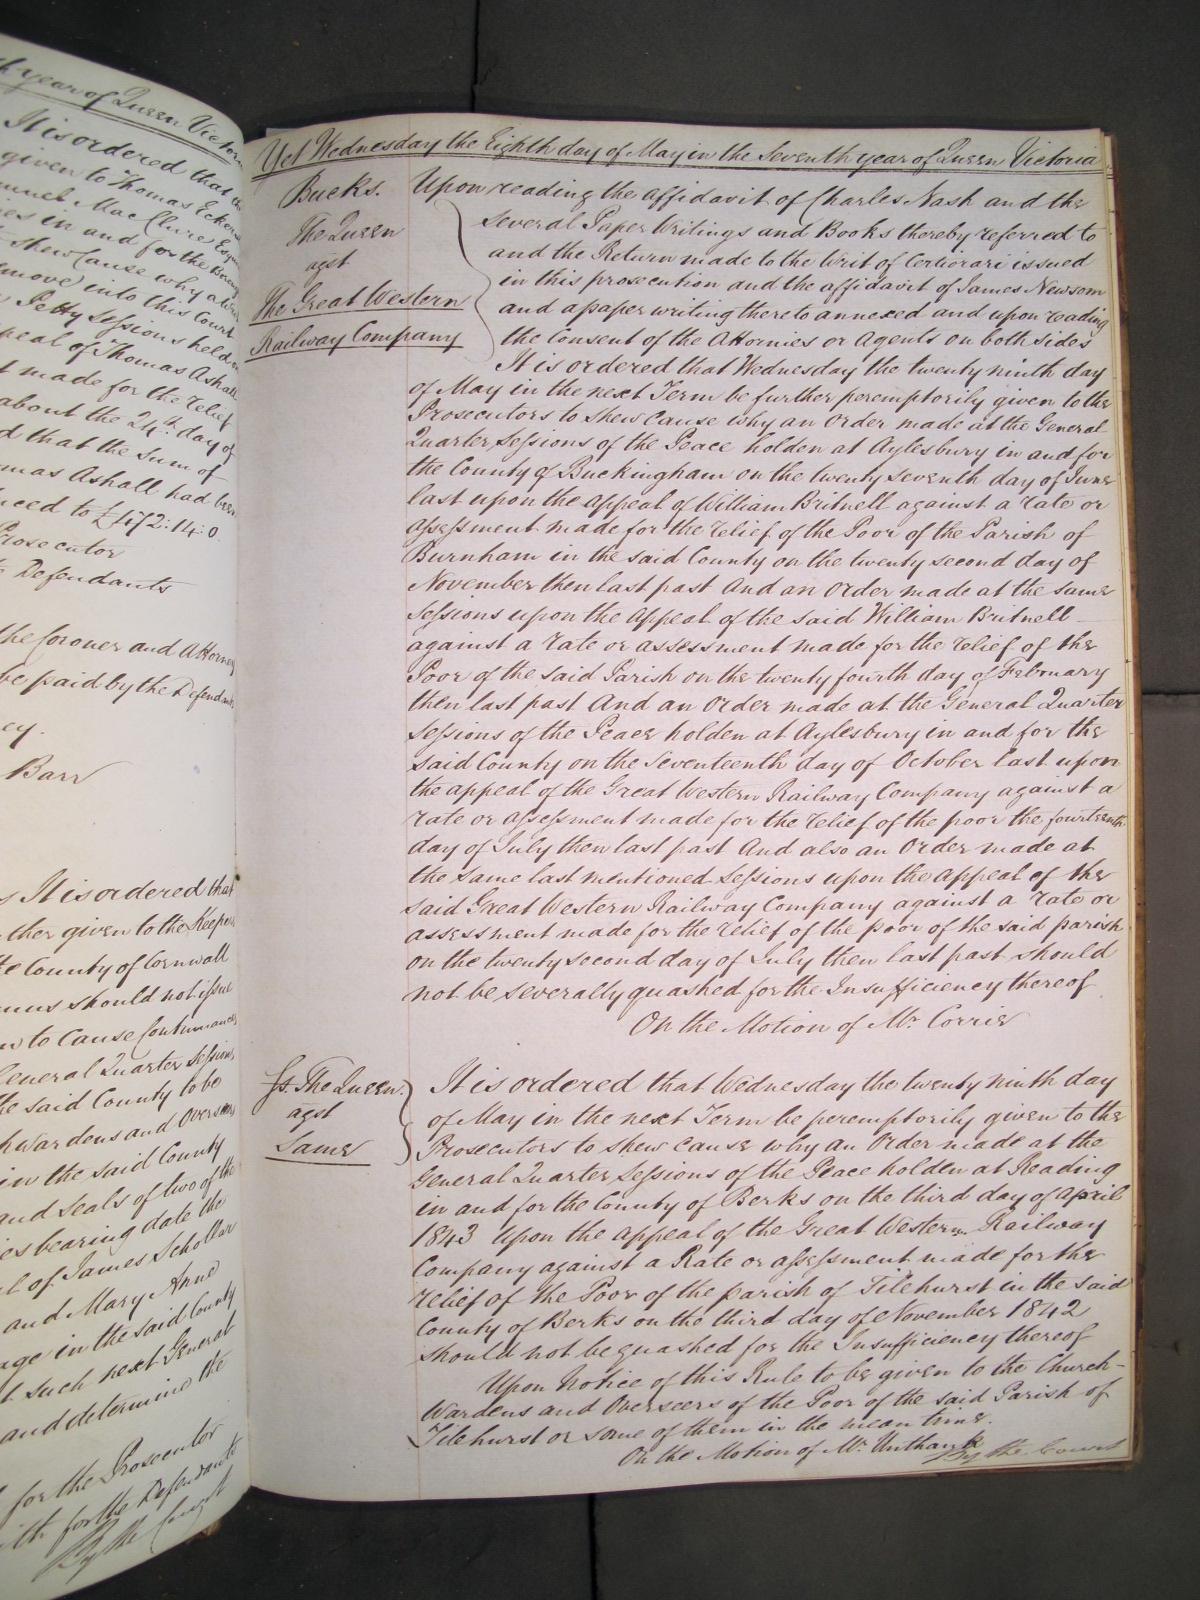 year of Queen Victoria
It is ordered that the
given to Thomas
MacClure Esq
in and for the
shew cause why a
remove into this Court
Petty Sessions held
appeal of Thomas Ashall
made for the relief
about the 24th day of
that the Sum of
Thomas Ashall had been
to £172:14:0
Prosecutor
Defendants
the Coroner and Attorney
be paid by the Defendants
Barr
It is ordered that
given to the Keepers
the County of Cornwall
should not issue
to cause Continuances
General Quarter Sessions
the said County to be
Churchwardens and Overseers
in the said County
and Seals of two of the
bearing date the
of James Schollar
and Mary Anne
in the said County
such next General
and determine the
for the Prosecutor
for the Defendants
By the Court
Yet Wednesday the Eighth day of May in the Seventh year of Queen Victoria
Bucks.
The Queen
agst
The Great Western
Railway Company
Upon reading the affidavit of Charles Nash and the
several Paper Writings and Books thereby referred to
and the Return made to the Writ of Certiorari issued
in this prosecution and the affidavit of James Newsom
and a paper writing thereto annexed and upon reading
the Consent of the Attornies or Agents on both sides
It is ordered that Wednesday the twenty ninth day
of May in the next Term be further peremptorily given to the
Prosecutors to shew cause why an Order made at the General
Quarter Sessions of the Peace holden at Aylesbury in and for
the County of Buckingham on the twenty seventh day of June
last upon the appeal of William Britnell against a rate or
assessment made for the relief of the Poor of the Parish of
Burnham in the said County on the twenty second day of
November then last past And an Order made at the same
Sessions upon the appeal of the said William Britnell
against a rate or assessment made for the relief of the
Poor of the said Parish on the twenty fourth day of February
then last past And an Order made at the General Quarter
Sessions of the Peace holden at Aylesbury in and for the
said County on the Seventeenth day of October last upon
the appeal of the Great Western Railway Company against a
rate or assessment made for the relief of the poor the fourteenth
day of July then last past And also an Order made at
the same last mentioned Sessions upon the appeal of the
said Great Western Railway Company against a rate or
assessment made for the relief of the poor of the said parish
on the twenty second day of July then last past should
not be severally quashed for the Insufficiency thereof
On the Motion of Mr. Corrie
The Queen
agst
Same
It is ordered that Wednesday the twenty ninth day
of May in the next Term be peremptorily given to the
Prosecutors to shew cause why an Order made at the
General Quarter Sessions of the Peace holden at Reading
in and for the County of Berks on the third day of April
1843 upon the appeal of the Great Western Railway
Company against a Rate or assessment made for the
relief of the Poor of the parish of Tilehurst in the said
County of Berks on the third day of November 1842
should not be quashed for the Insufficiency thereof
Upon Notice of this Rule to be given to the Church-
Wardens and Overseers of the Poor of the said Parish of
Tilehurst or some of them in the mean time.
On the Motion of Mr. Unthank
By the Court